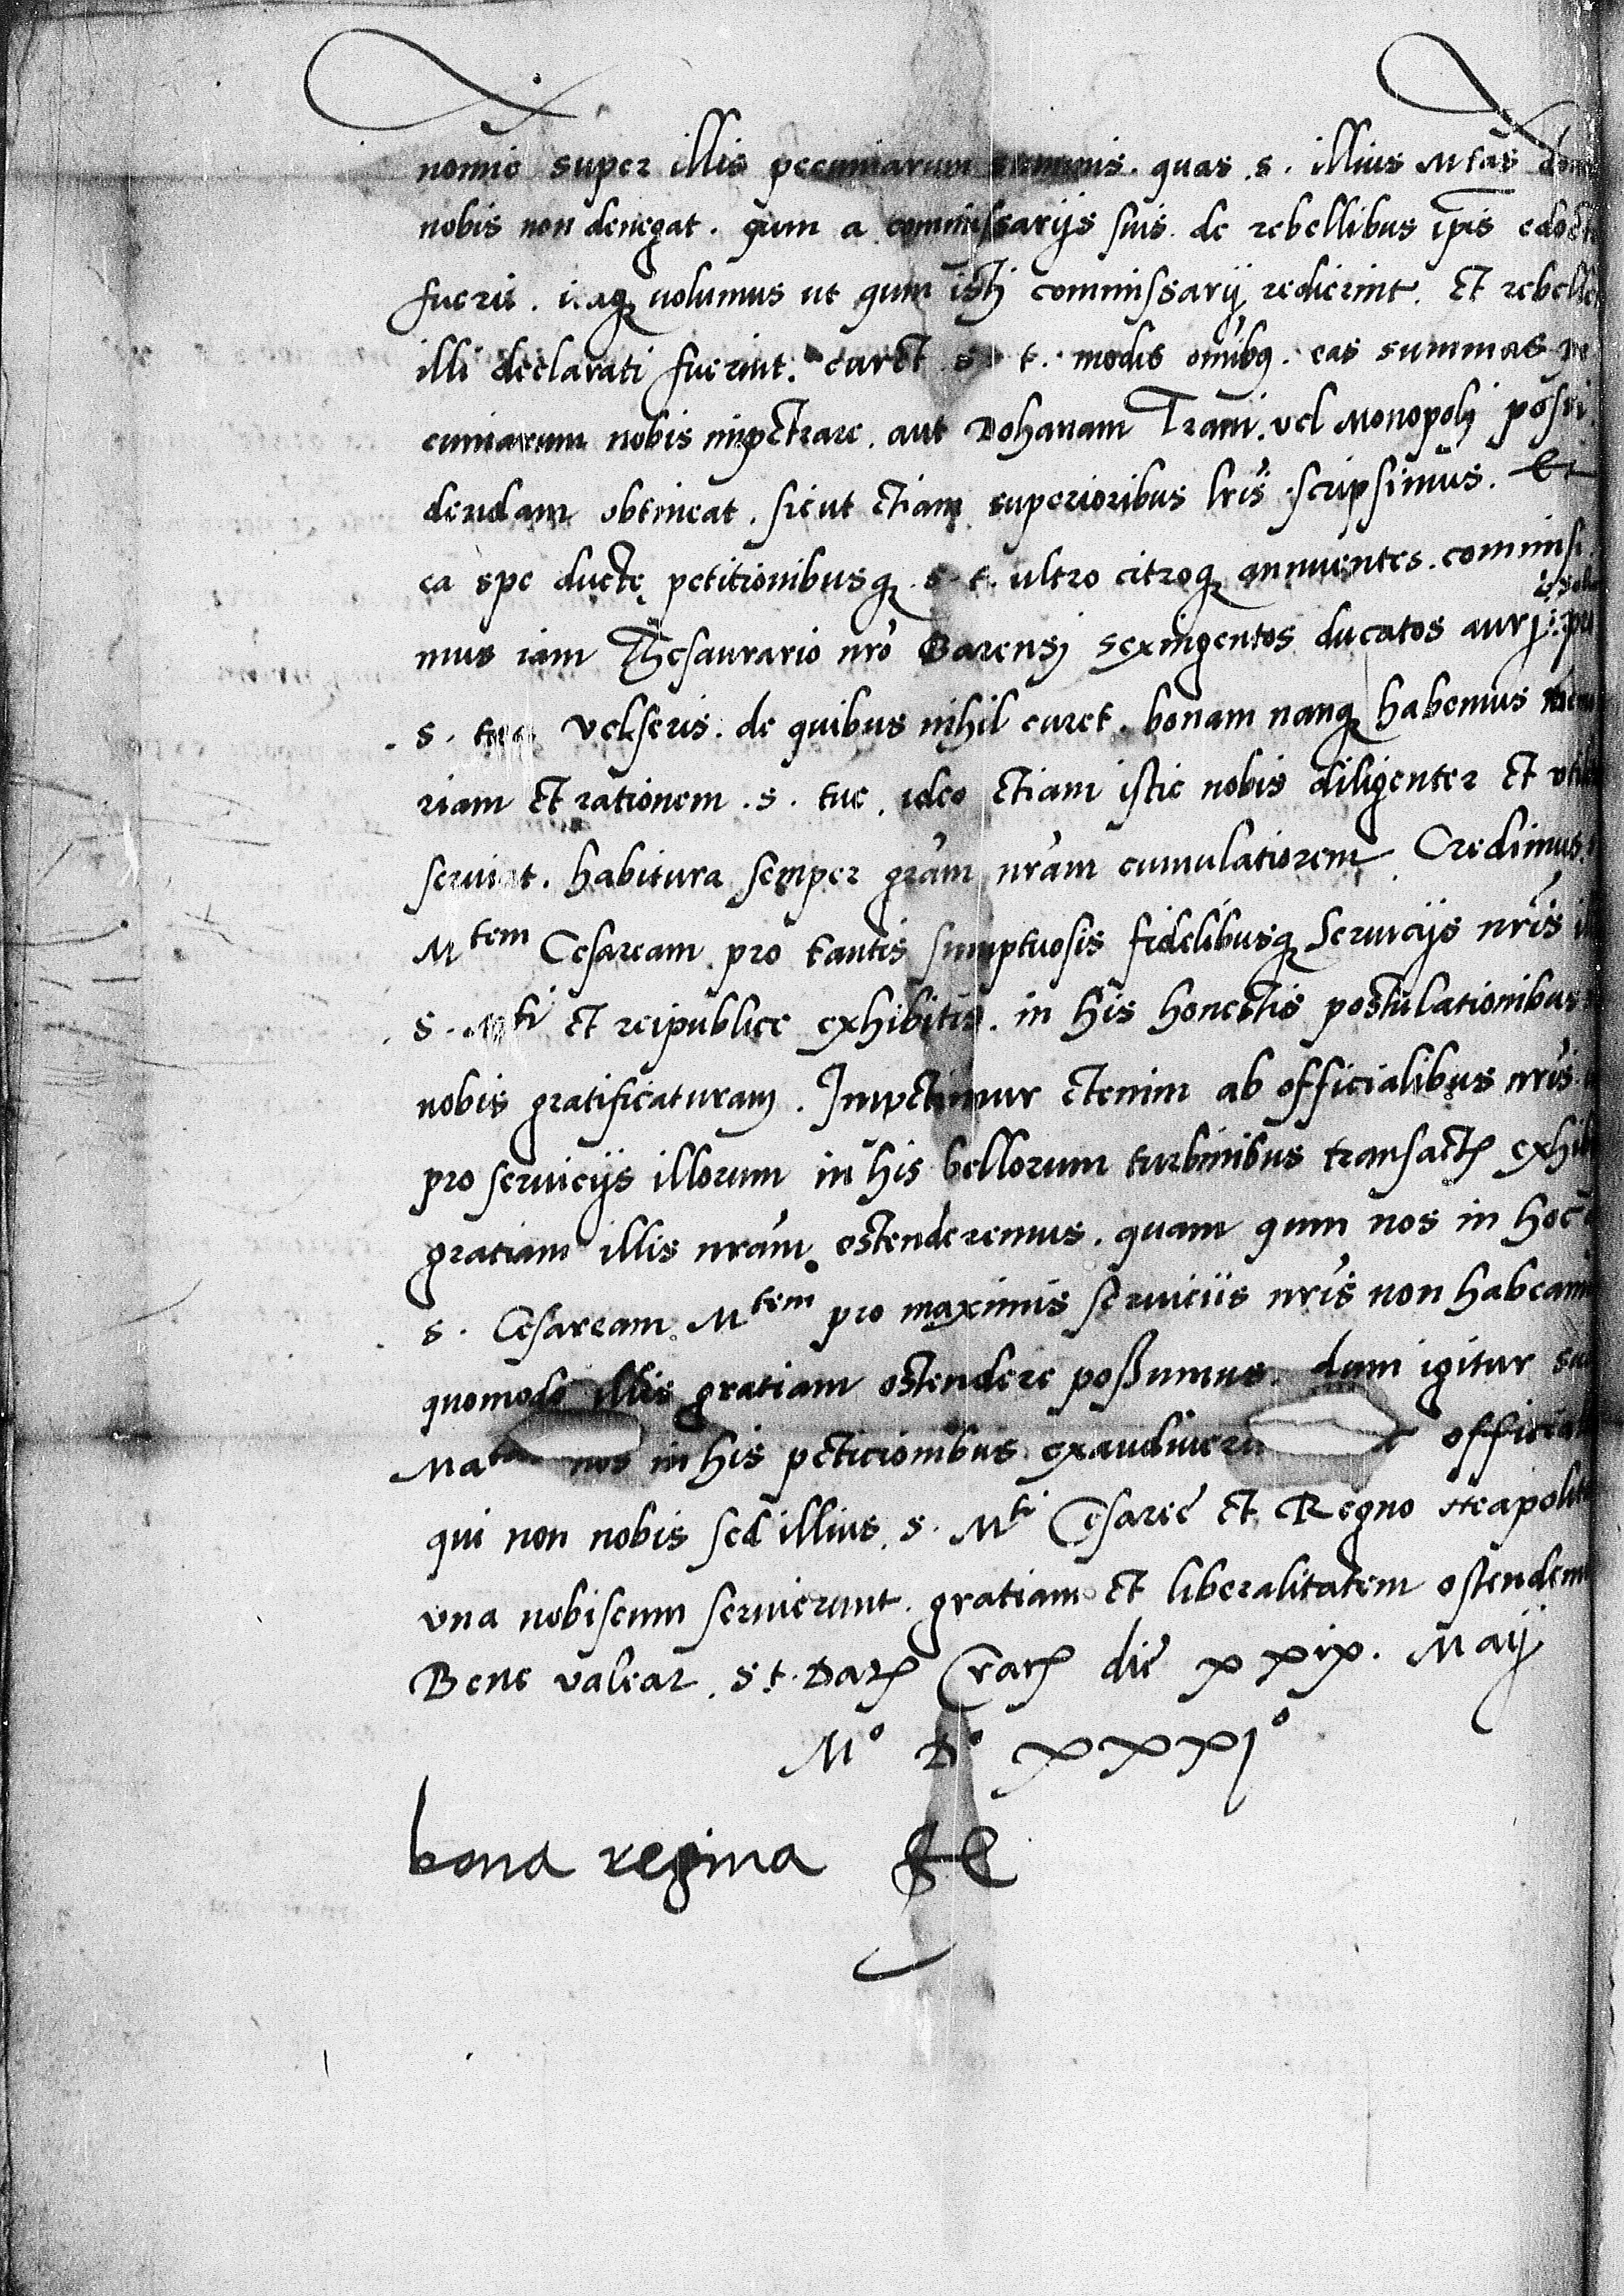 nomie super illis pecuniarum summis. quas .s. illius Mtas
nobis non denegat. qum a commissarijs suis. de rebellibus ipīs edoct
fuerit. itaq volumus ut qum istj commissarij redierint. Et rebelle
illi declarati fuerint. curet s. t. modis omībq. eas summas pe
cuniarum nobis impetrare. aut Dohanam Tranj. vel Monopolj possi
dendam obtineat. sicut etiam superioribus lrīs scripsimus. Et
ea spe ductę petitionibusq s. t. ultro citroq annuentes. commisi
mus iam Thesaurario nrō Barensj sexingentos ducatos aurj
s. tue Velseris. de quibus nihil curet. bonam nanq habemus memo
riam et rationem .s. tue. ideo etiam istic nobis diligenter et
serviat. habitura semper grām nrām cumulatiorem. Credimus
Mtem Cesaream pro tantis sumptuosis fidelibusq Servicijs nrīs
s. Mti et reipublice exhibitis. in his honestis postulationibus
nobis gratificaturam. Impetimur etenim ab officialibus nrīs
pro servicijs illorum in his bellorum turbinibus transact exhib
gratiam illis nrām ostenderemus. quam qum nos in hoc
s. Cesaream Mtem pro maximis serviciis nrīs non habeam
quomodo illis gratiam ostendere possumus. dum igitur
Matas nos in his peticionibus exaudiveri officia
qui non nobis sed illius s. Mti Cesaree et Regno Neapolit
una nobiscum servierunt. gratiam et liberalitatem ostendem
Bene valeat. s. t. Dat Crac die xxix. Maij
Mo Do xxxjo
bona regina